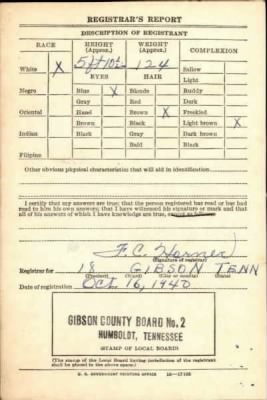 REGISTRAR'S REPORT
DESCRIPTION OF REGISTRANT
RACE HEIGHT (Approx.) WEIGHT (Approx.) COMPLEXION
White X 5 ft 10½ 124 Sallow
EYES HAIR Light
Negro Blue X Blonde Ruddy
Gray Red Dark
Oriental Hazel Brown X Freckled
Brown Black Light brown X
Indian Black Gray Dark brown
Bald Black
Filipino
Other obvious physical characteristics that will aid in identification
I certify that my answers are true; that the person registered has read or has had
read to him his own answers; that I have witnessed his signature or mark and that
all of his answers of which I have knowledge are true, except as follows:
F. C. Horner
(Signature of registrar)
Registrar for 18 GIBSON TENN
(Precinct) (Ward) (City or county) (State)
Date of registration Oct 16, 1940
GIBSON COUNTY BOARD No. 2
HUMBOLDT, TENNESSEE
(STAMP OF LOCAL BOARD)
(The stamp of the Local Board having jurisdiction of the registrant
shall be placed in the above space.)
U. S. GOVERNMENT PRINTING OFFICE 16—17105